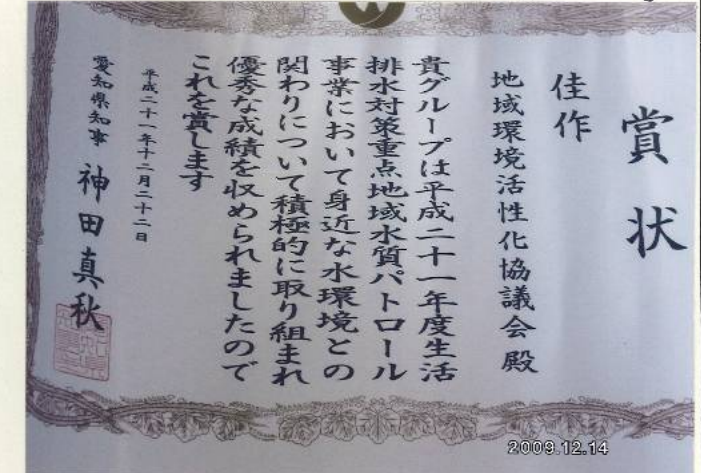 賞状
佳作
地域環境活性化協議会殿
貴グループは平成二十一年度生活
排水対策重点地域水質パトロール
事業において身近な水環境との
関わりについて積極的に取り組まれ
優秀な成績を収められましたので
これを賞します
平成二十一年十二月二十二日
愛知県知事 神田真秋
2009.12.14